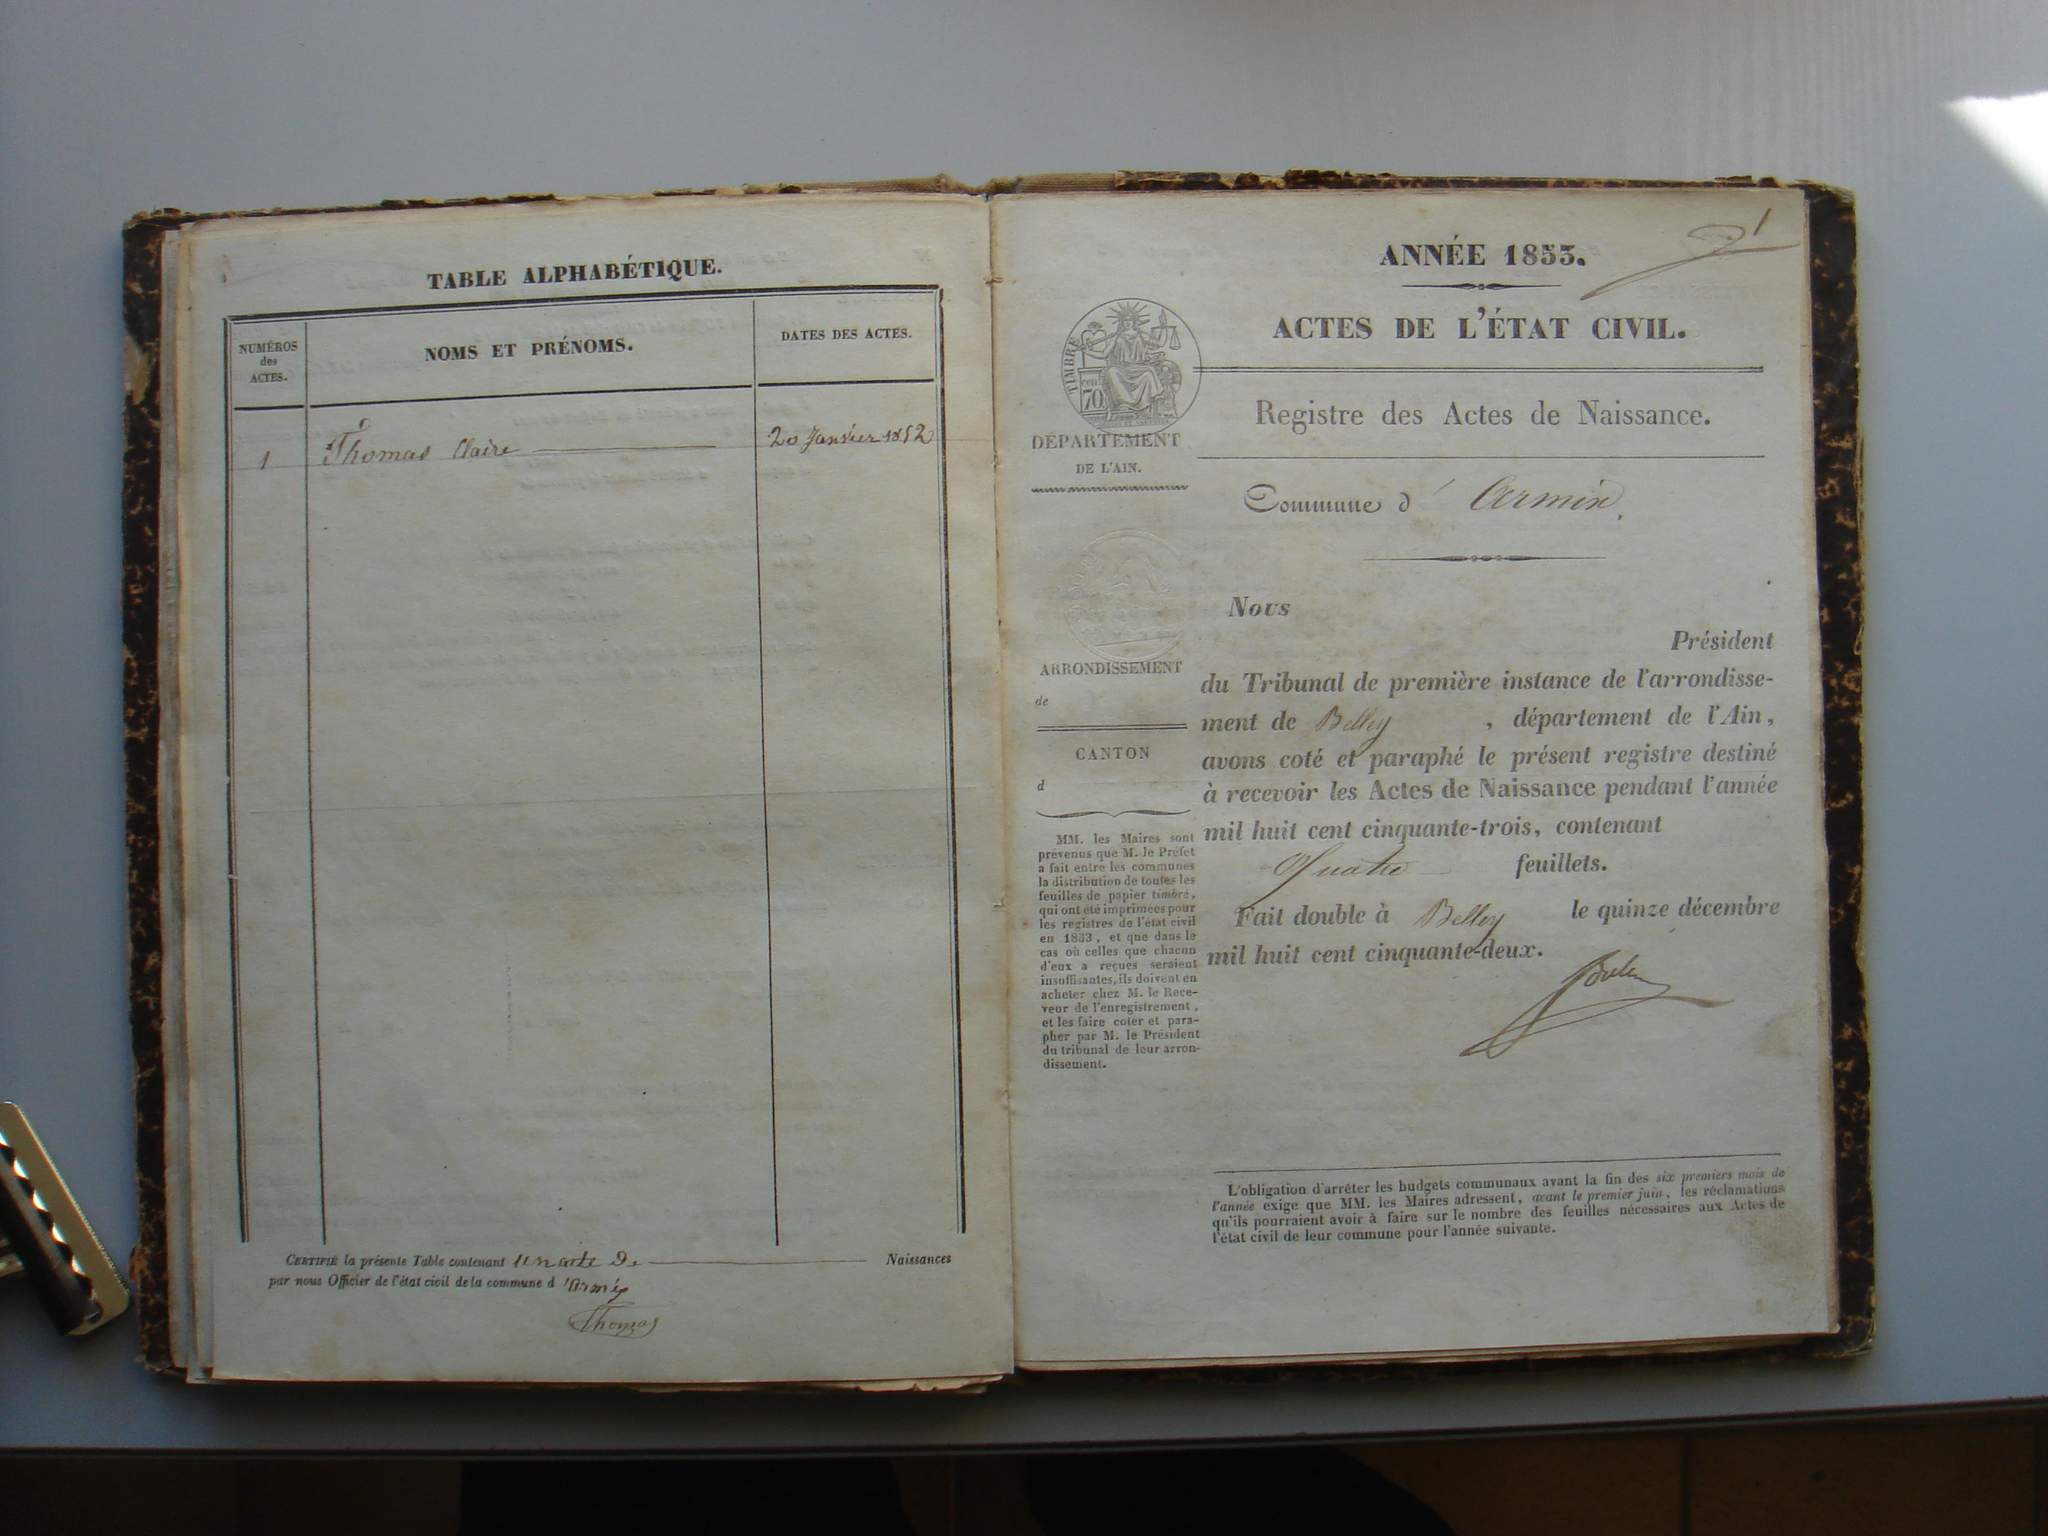 TABLE ALPHABÉTIQUE.
NUMÉROS
des
ACTES.
NOMS ET PRÉNOMS.
DATES DES ACTES.
1 Thomas Claire 20 Janvier 1852
CERTIFIÉ la présente Table contenant un acte de Naissances
par nous Officier de l'état civil de la commune d
Thomas
1
ANNÉE 1853.
ACTES DE L'ÉTAT CIVIL.
Registre des Actes de Naissance.
TIMBRE
70 cent
DÉPARTEMENT
DE L'AIN.
Commune d' Armix.
ARRONDISSEMENT
de
CANTON
d
MM. les Maires sont
prévenus que M. le Préfet
a fait entre les communes
la distribution de toutes les
feuilles de papier timbré,
qui ont été imprimées pour
les registres de l'état civil
en 1853, et que dans le
cas où celles que chacun
d'eux a reçues seraient
insuffisantes, ils doivent en
acheter chez M. le Rece-
veur de l'enregistrement,
et les faire coter et para-
pher par M. le Président
du tribunal de leur arron-
dissement.
Nous
Président
du Tribunal de première instance de l'arrondisse-
ment de Belley , département de l'Ain,
avons coté et paraphé le présent registre destiné
à recevoir les Actes de Naissance pendant l'année
mil huit cent cinquante-trois, contenant
Quatre feuillets.
Fait double à Belley le quinze décembre
mil huit cent cinquante-deux.
L'obligation d'arrêter les budgets communaux avant la fin des six premiers mois de
l'année exige que MM. les Maires adressent, avant le premier juin, les réclamations
qu'ils pourraient avoir à faire sur le nombre des feuilles nécessaires aux Actes de
l'état civil de leur commune pour l'année suivante.